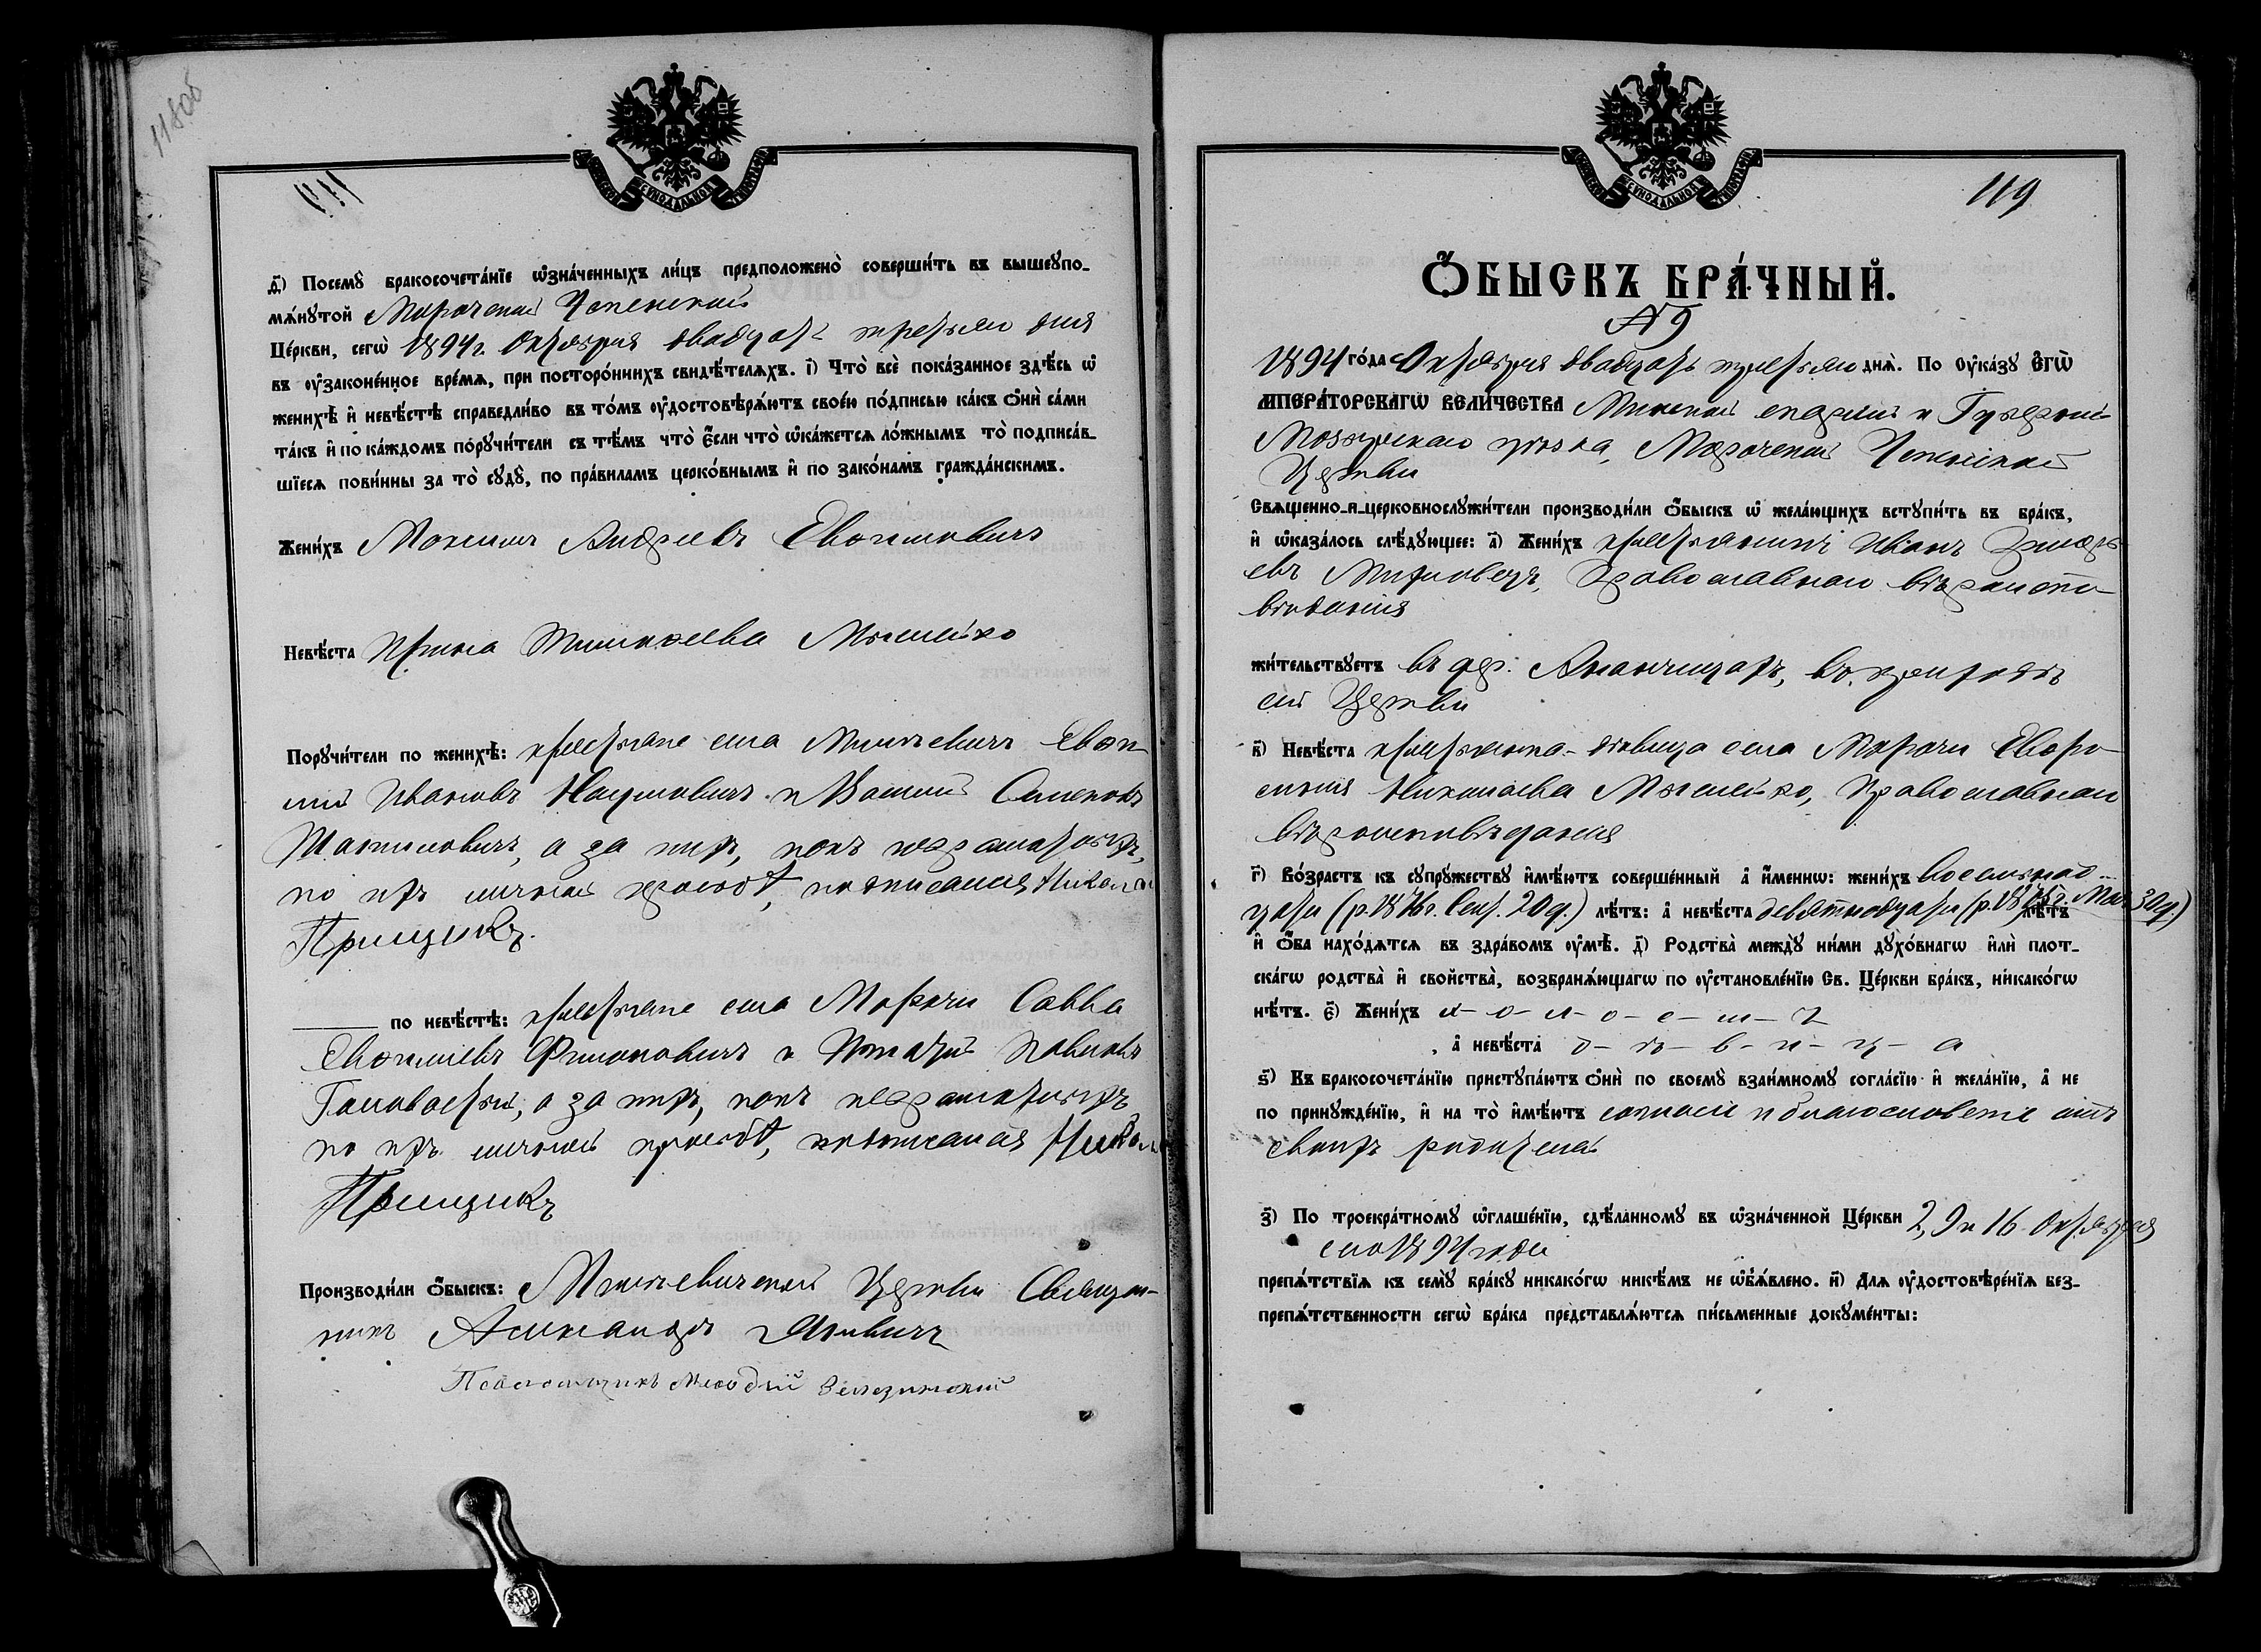 118об
д҃) Посемꙋ̀ бракосочета́нїе ѡ҆зна́ченныхъ ли́цъ предположено̀ соверши́ть въ вышеꙋпо-
мѧ́нꙋтой Морочской Успенской
Це́ркви, сегѡ̀ 1894 г. Октября двадцать третьяго дня
въ ᲂу҆законе́нное вре́мѧ, при посторо́ннихъ свидѣ́телѧхъ. і҃) Что̀ всѐ пока́занное здѣ́сь ѡ҆
женихѣ̀ и҆ невѣ́стѣ справедли́во въ то́мъ ᲂу҆достовѣрѧ́ютъ свое́ю по́дписью ка́къ ѻ҆нѝ са́ми
та́къ и҆ по ка́ждомъ порꙋчи́тели съ тѣ́мъ что̀ є҆́сли что̀ ѡ҆ка́жетсѧ ло́жнымъ то̀ подписа́в-
шїесѧ пови́нны за то̀ сꙋдꙋ̀, по пра́виламъ церко́внымъ и҆ по зако́намъ гражда́нскимъ.
Жени́хъ Андреевъ
Невѣ́ста
Порꙋчи́тели по женихѣ̀: крестьяне села Милевичъ
Ивановъ Наумовичъ и Василий Семеновъ
а за нихъ, какъ неграмотныхъ,
по ихъ личной просьбѣ, подписался Никола
Прищикъ.
по невѣ́стѣ: крестьяне села Морочи Савва
Филоновичъ и Игнатий
а за нихъ, какъ неграмотныхъ
по ихъ личной просьбѣ, подписался Никола
Прищикъ
Производи́ли ѻ҆́быскъ: Милевичской Церкви Священ-
никъ Александръ
Псаломщикъ Мефодий
119
Ѻ҆́БЫСКЪ БРА́ЧНЫЙ.
№ 9
1894 го́да Октября двадцать третьяго днѧ̀. По ᲂу҆ка́зꙋ є҆гѡ̀
и҆мпера́торскагѡ вели́чества Минской епархии и Губернии
Мозырскаго уѣзда, Морочской Успенской
Церкви
Свѧщенно-и-церковнослꙋжи́тели производи́ли ѻ҆́быскъ ѡ҆ жела́ющихъ встꙋпи́ть въ бра́къ,
и҆ ѡ҆каза́лось слѣ́дꙋющее: а҃) Жени́хъ крестьянинъ Иванъ Григорь-
евъ Православнаго вѣроиспо-
вѣданія
жи́тельствꙋетъ въ дер. Ананчицахъ, въ приходѣ
сей Церкви
в҃) Невѣ́ста крестьянка-дѣвица села Морочи Евфро-
синія Николаева Православнаго
вѣроисповѣданія
г҃) Во́зрастъ къ сꙋпрꙋ́жествꙋ и҆мѣ́ютъ соверше́нный а҆ и҆́меннѡ: жени́хъ восемнад-
цати (р. 1876 г. Сент. 20 д.) лѣ́тъ: а҆ невѣ́ста девятнадцати (р. 1875 г. Мая 30 д.) лѣ́тъ
и҆ ѻ҆́ба нахо́дѧтсѧ въ здра́вомъ ᲂу҆мѣ̀. д҃) Родства̀ междꙋ̀ ни́ми дꙋхо́внагѡ и҆лѝ плот-
ска́гѡ родства̀ и҆ сво́йства̀, возбранѧ́ющагѡ по ᲂу҆становле́нїю Св. Це́ркви бра́къ, никако́гѡ
нѣ́тъ. є҃) Жени́хъ х-о-л-о-с-т-ъ
, а҆ невѣ́ста д-ѣ-в-и-ц-а
ѕ҃) Къ бракосочета́нїю пристꙋпа́ютъ ѻ҆нѝ по своемꙋ̀ взаи́мномꙋ согла́сїю и҆ жела́нїю, а҆ не
по принꙋжде́нїю, и҆ на то̀ и҆мѣ́ютъ согласіе и благословеніе отъ
своихъ родителей
з҃) По троекра́тномꙋ ѡ҆глаше́нїю, сдѣ́ланномꙋ въ ѡ҆зна́ченной Це́ркви 2, 9 и 16 Октября
сего 1894 года
препѧ́тствїѧ къ семꙋ̀ бра́кꙋ никако́гѡ никѣ́мъ не ѡ҆б̾ѧ́влено. и҃) Длѧ ᲂу҆достовѣре́нїѧ без-
препѧ́тственности сегѡ̀ бра́ка представлѧ́ютсѧ пи́сьменные докꙋме́нты: